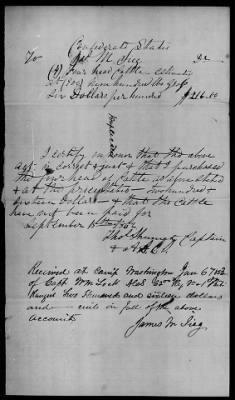 Confederate States
To Jas M. Tieg Dr
(4) Four head Cattle
at nine hundred lbs gross
Six Dollars per hundred $216.00
I certify on honor that the above
acpt is correct & just & that I purchased
the four head of Cattle as above stated
& at the price stated two hundred &
sixteen dollars & that the Cattle
have not been paid for
September 15th 1862
Captain
& A.C.S.
Received at Camp Washington Jan 6 1863
of Capt Wm Lock Ala 62 Reg Vol
Two Hundred and sixteen dollars
and cents in full of the above
account
James M Tieg